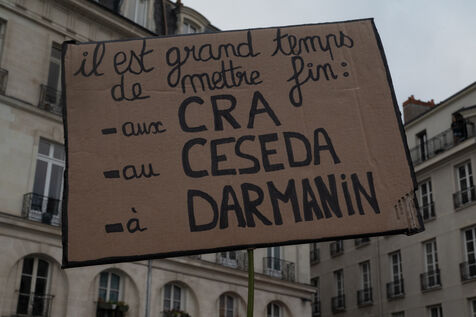 il est grand temps
de mettre fin :
- aux CRA
- au CESEDA
- à DARMANiN